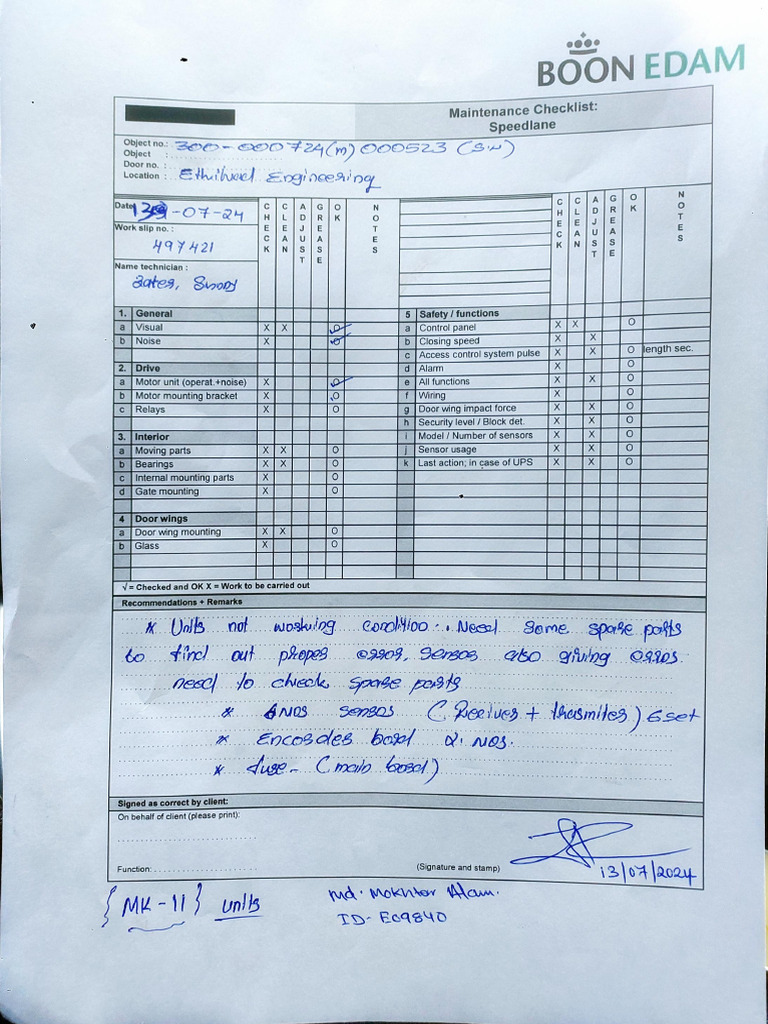 BOON EDAM
Maintenance Checklist:
Speedlane
Object no.: 300-000724(m) 000523 (S.N)
Object :
Door no. :
Location : Ethihad Engineering
Date: 13-07-24
Work slip no. :
497421
Name technician :
CHECK CLEAN ADJUST GREASE OK NOTES
CHECK CLEAN ADJUST GREASE OK NOTES
1. General
a Visual X X O ✓
b Noise X O ✓
2. Drive
a Motor unit (operat.+noise) X O ✓
b Motor mounting bracket X O
c Relays X O
3. Interior
a Moving parts X X O
b Bearings X X O
c Internal mounting parts X O
d Gate mounting X O
4 Door wings
a Door wing mounting X X O
b Glass X O
5 Safety / functions
a Control panel X X O
b Closing speed X X
c Access control system pulse X X O length sec.
d Alarm X O
e All functions X X O
f Wiring X O
g Door wing impact force X X O
h Security level / Block det. X X O
i Model / Number of sensors X X O
j Sensor usage X X O
k Last action; in case of UPS X X O
√ = Checked and OK X = Work to be carried out
Recommendations + Remarks
* Units not working condition. Need some spare parts
to find out proper error, sensor also giving error.
need to check spare parts
* 6 NOS sensor (Receiver + trasmiter) 6 set
* Encorder borad 2. NOS.
* fuse - (main borad)
Signed as correct by client:
On behalf of client (please print):
Function:
(Signature and stamp)
13/07/2024
{MK-II} units
Md. Mokhtar Alam.
ID- EC9840